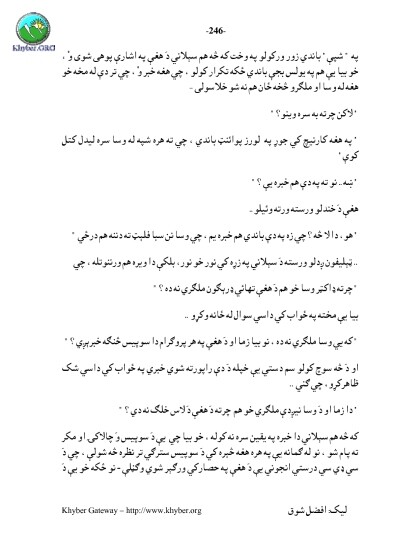 -246-
Khyber.ORG
په " شپې " باندي زور ورکولو په وخت که څه هم سپلاني دَ هغې په اشارې پوهی شوی وُ ،
خو بيا يې هم په يولس بجې باندي ځکه تکرار کولو ، چي هغه خبر وُ ، چي تر دې له مخه خو
هغه له وسا او ملګرو څخه ځان هم نه شو خلاسولی -
" لاکن چرته به سره وينو ؟ "
" په هغه کارنيچ کي جوړ په لورز پوائنټ باندي ، چي ته هره شپه له وسا سره ليدل کتل
کوې "
" ښه .. نو ته په دې هم خبره يې ؟ "
هغې دَ خندلو ورسته ورته وئيلو ..
" هو ، دا لا څه ؟ چي زه په دې باندي هم خبره يم ، چي وسا نن سبا فليټ ته دننه هم درځي "
.. ټيليفون بندولو ورسته دَ سپلاني په زړه کي نور خو نور ، بلکې دا ويره هم ورننوتله ، چي
" چرته ډاکټر وسا خو هم دَ هغې تنهائي دَ رېګون ملګري نه ده ؟ "
بيا يې مخته په ځواب کي داسي سوال له ځانه وکړو ..
" که يې وسا ملګري نه ده ، نو بيا زما او دَ هغې په هر پروګرام دا سوپيس څنګه خبرېږي ؟ "
او دَ څه سوچ کولو سم دستي يې خپله دَ دې راپورته شوي خبري په ځواب کي داسي شک
ظاهر کړو ، چي ګني ..
" دا زما او دَ وسا نيږدې ملګري خو هم چرته دَ هغې دَ لاس خلګ نه دي ؟ "
که څه هم سپلاني دا خبره په يقين سره نه کوله ، خو بيا چي يې دَ سوپيس وَ چالاکۍ او مکر
ته پام شو ، نو له ګمانه يې په هره هغه خبره کي دَ سوپيس سترګي تر نظره څه شولې ، چي دَ
سي ډي سي درستي انجونې يې دَ هغې په حصار کي ورګېر شوي وګڼلې - نو ځکه خو يې دَ
Khyber Gateway – http://www.khyber.org
ليک: افضل شوق